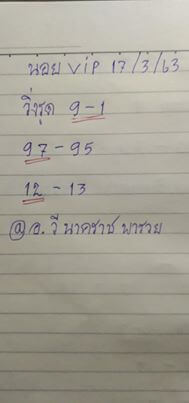 นอย VIP 17/3/63
วิ่งรุด 9-1
97-95
12-13
@อ.วี นาคราช พารวย